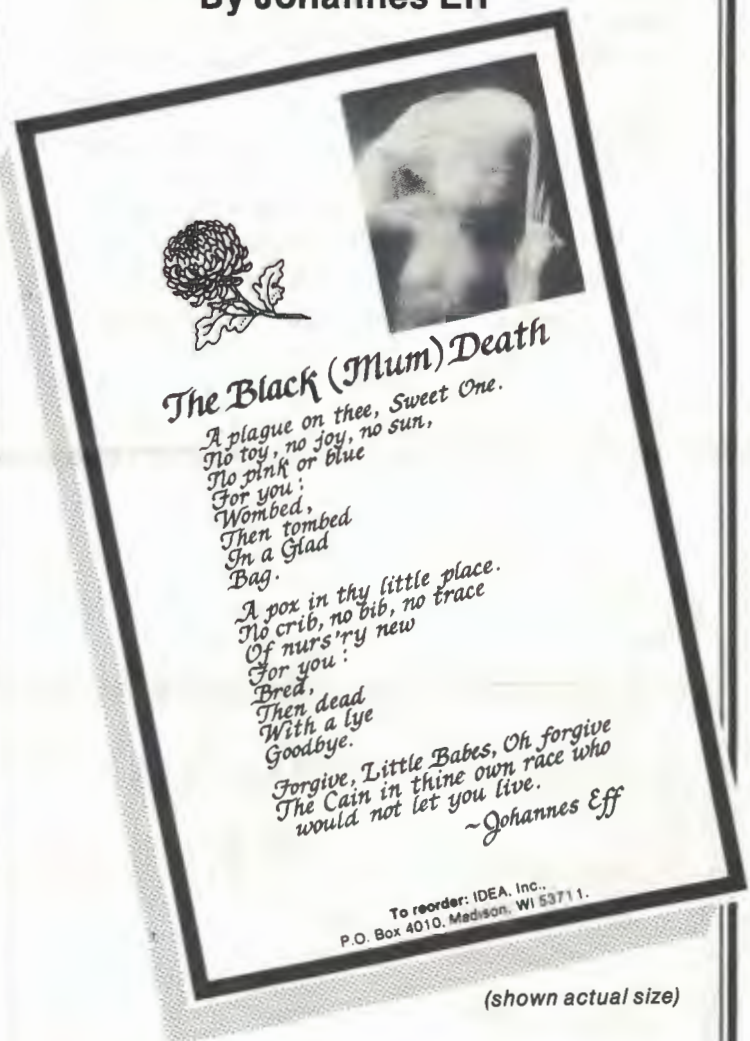 By Johannes Eff
The Black (Mum) Death
A plague on thee, Sweet One.
No toy, no joy, no sun,
No pink or blue
For you:
Wombed,
Then tombed
In a Glad
Bag.
A pox in thy little place.
No crib, no bib, no trace
Of nurs'ry new
For you:
Bred,
Then dead
With a lye
Goodbye.
Forgive, Little Babes, Oh forgive
The Cain in thine own race who
would not let you live.
~Johannes Eff
To reorder: IDEA, Inc.,
P.O. Box 4010, Madison, WI 53711.
(shown actual size)